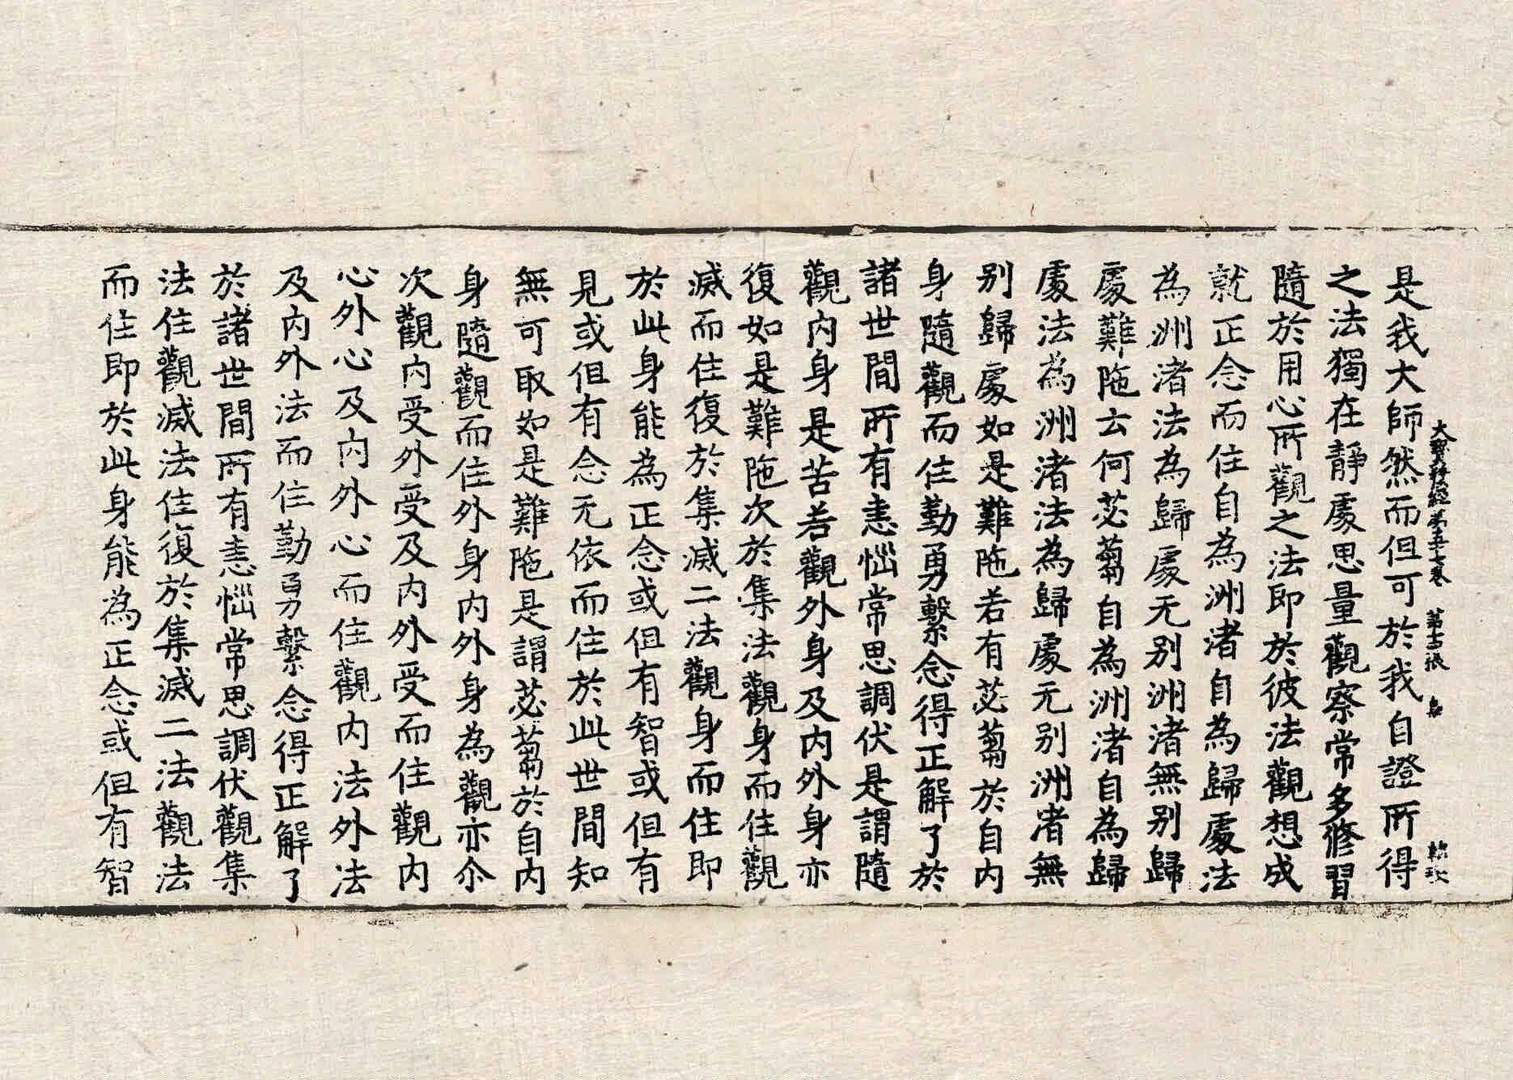 大寶積經第五十七卷 第十吉張 鳥
是我大師然而但可於我自證所得
之法獨在靜處思量觀察常多修習
隨於用心所觀之法即於彼法觀想成
就正念而住自為洲渚自為歸處法
為洲渚法為歸處无别洲渚無别歸
處難陁云何苾蒭自為洲渚自為歸
處法為洲渚法為歸處无别洲渚無
别歸處如是難陁若有苾蒭於自内
身隨觀而住勤勇繫念得正解了於
諸世間所有恚惱常思調伏是謂隨
觀内身是苦若觀外身及内外身亦
復如是難陁次於集法觀身而住觀
滅而住復於集滅二法觀身而住即
於此身能為正念或但有智或但有
見或但有念无依而住於此世間知
無可取如是難陁是謂苾蒭於自内
身隨觀而住外身内外身為觀亦尒
次觀内受外受及内外受而住觀内
心外心及内外心而住觀内法外法
及内外法而住勤勇繫念得正解了
於諸世間所有恚惱常思調伏觀集
法住觀滅法住復於集滅二法觀法
而住即於此身能為正念或但有智